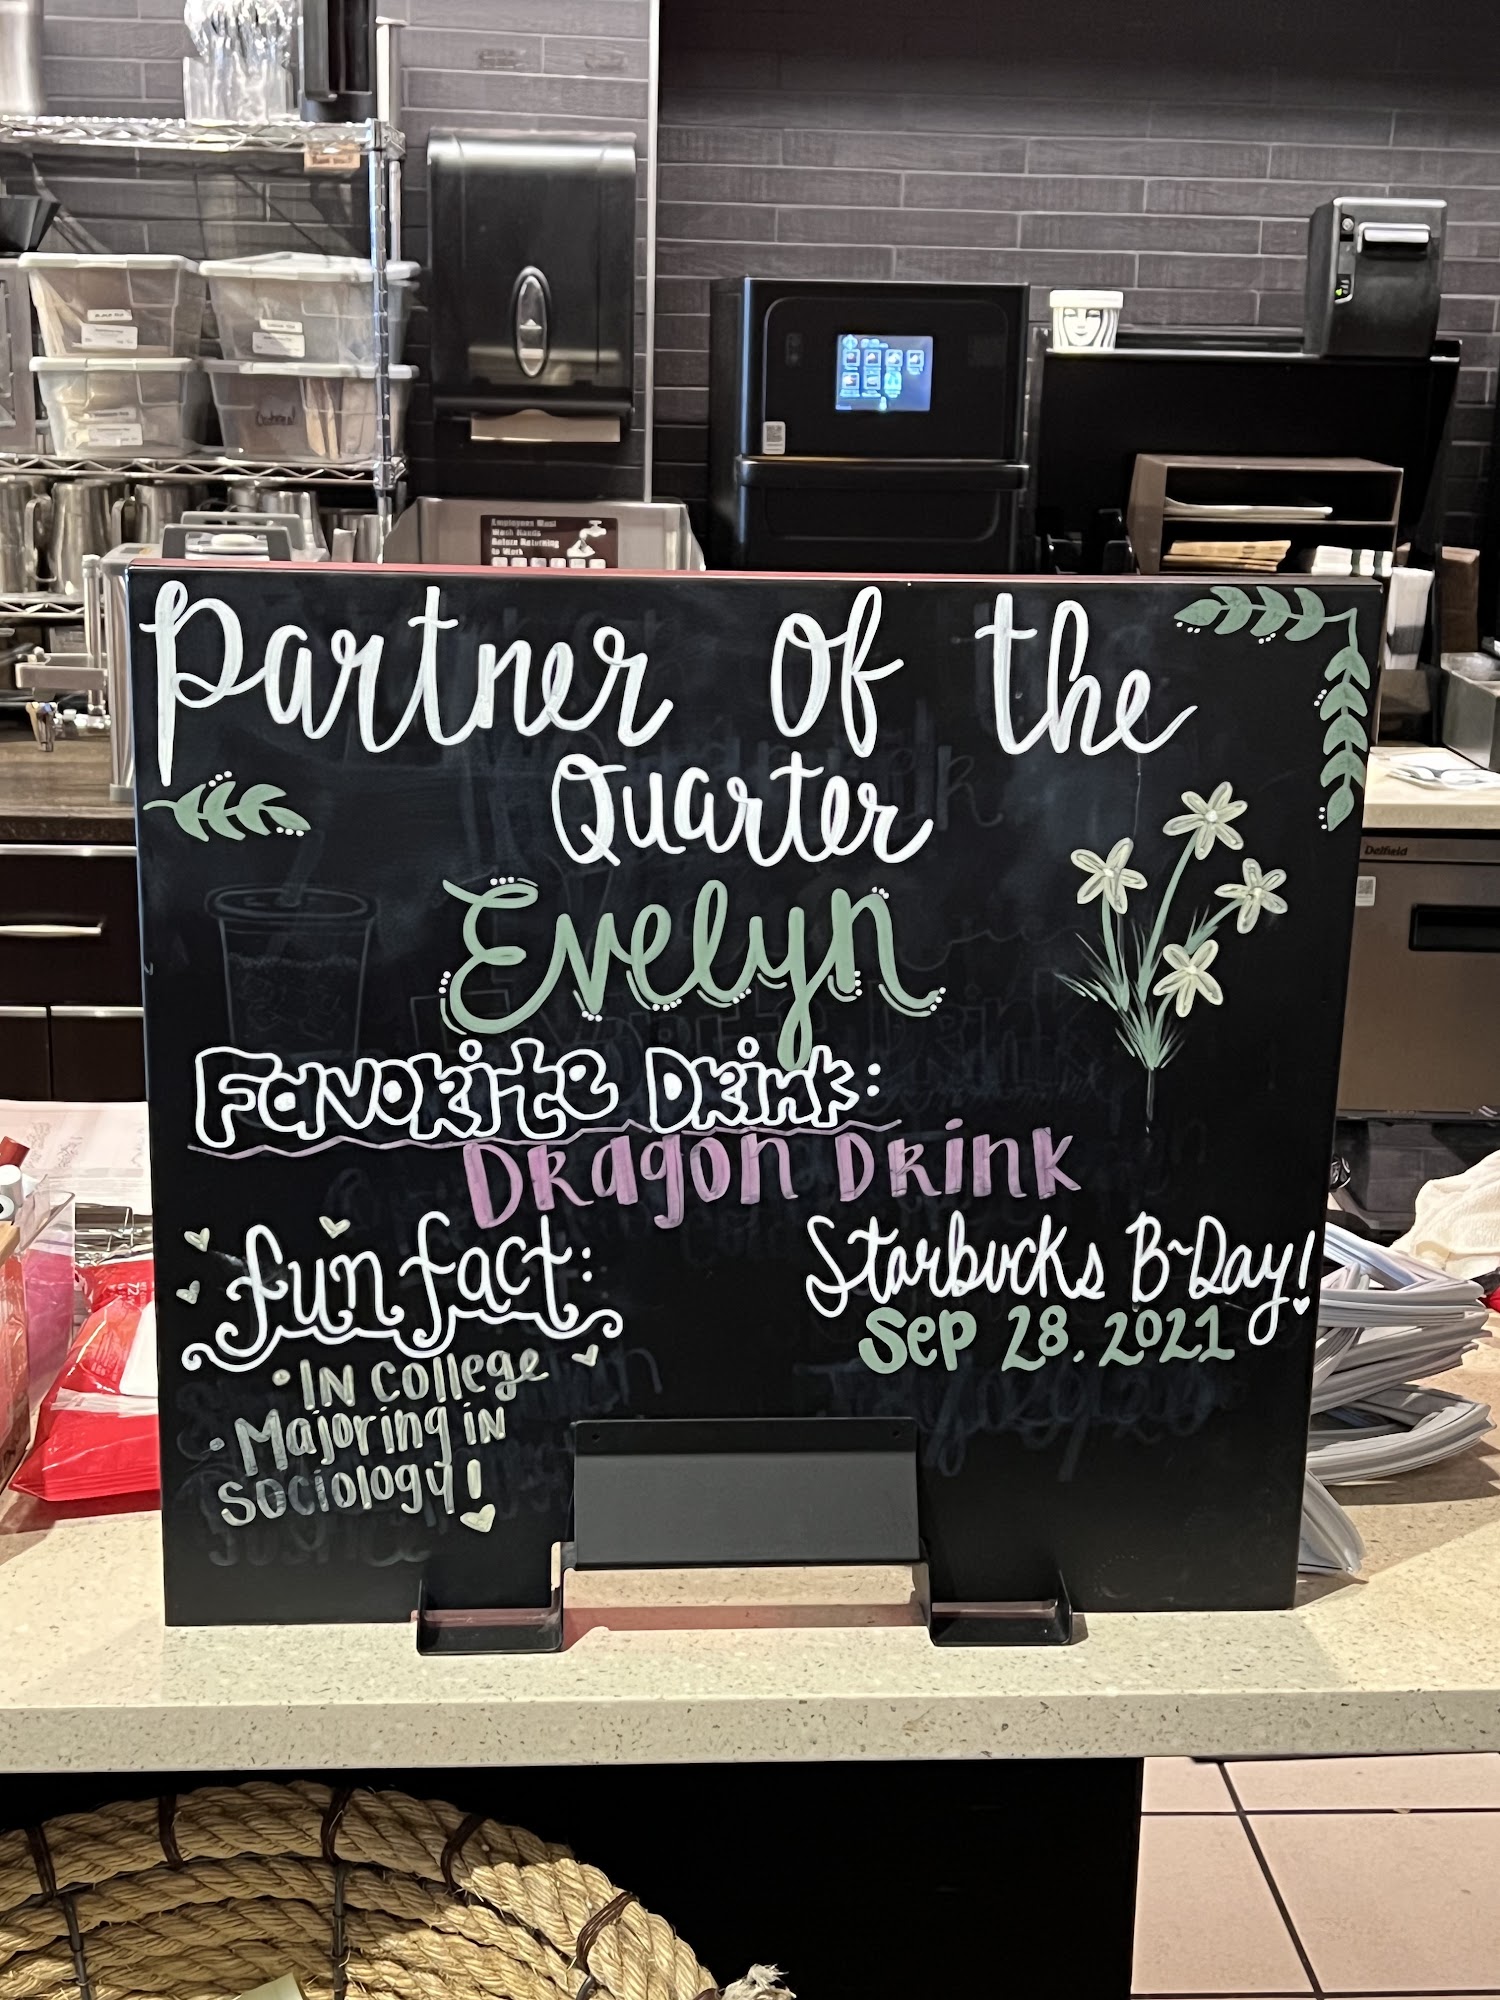 Employees Must
Wash Hands
Before Returning
to Work
Delfield
Partner Of the
Quarter
Evelyn
Favorite Drink:
Dragon Drink
fun fact:
• IN College
• Majoring in
sociology!
Starbucks B-Day!
Sep 28, 2021